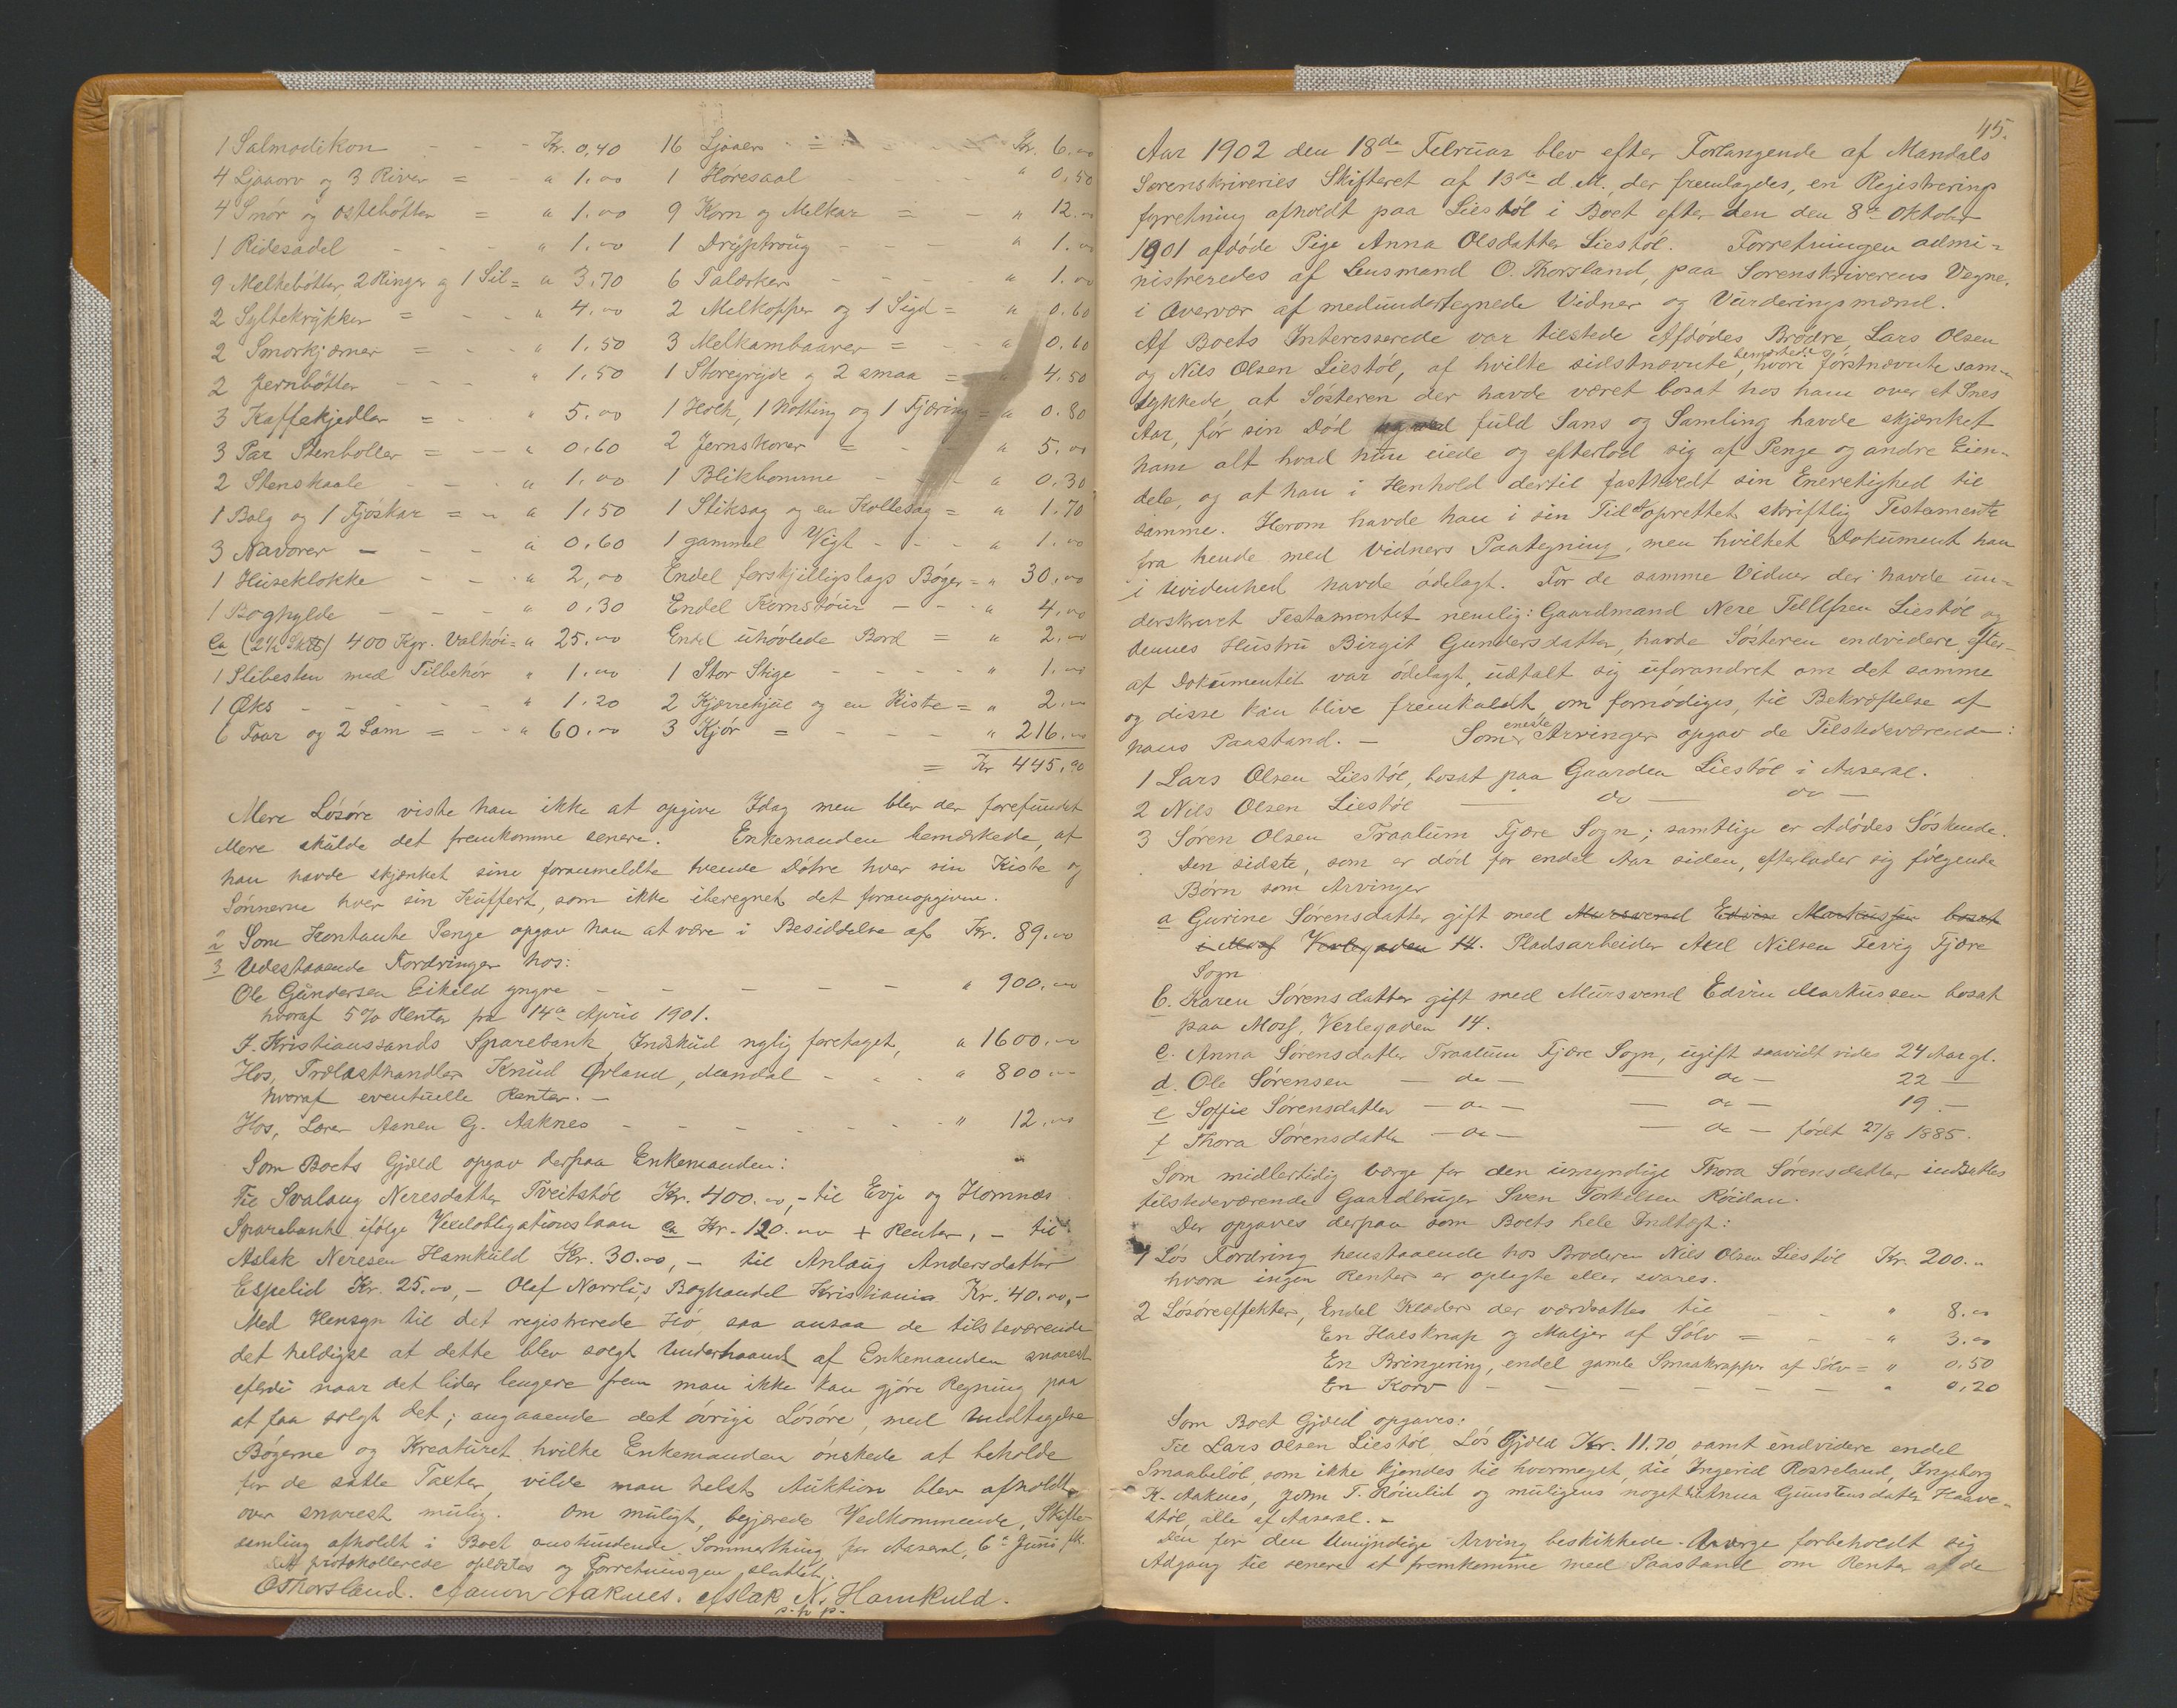 1 Salmodikon - - - Kr. 0,40
4 Ljaaorv og 3 River = - " 1.00
4 Smör og Ostebötter = " 1.00
1 Ridesadel - - - " 1.00
9 Melkebötter, 2 Ringer og 1 Sil = " 3,70
2 Syltekrykker = - - " 4.00
2 Smorkjærner = - - " 1.50
2 Jernbötter - - - " 1.50
3 Kaffekjedler = - " 5.00
3 Par Stenboller = - - " 0.60
2 Stenskaale - - - " 1.00
1 Balg og 1 Fjöskar = - " 1.50
3 Navorer - - - " 0.60
1 Huseklokke - - - " 2,00
1 Boghylde - - - " 0.30
Ca (2½ Sktt) 400 Kgr. Valhöi = " 25.00
1 Slibesten med Tilbehör " 1.00
1 Øks - - - - " 1.20
6 Faar og 2 Lam = - - " 60.00
16 Ljaaer = - - Kr. 6.00
1 Høresaal - - - " 0.50
9 Korn og Melkar = - " 12.00
1 Dryptroug - - - " 1.00
6 Talærker - - - " 1.00
2 Melkopper og 1 Sigd = " 0.60
3 Melkambaarer = - - " 0.60
1 Storegryde og 2 smaa = " 4.50
1 Holk, 1 Notting og 1 Fjæring = " 0.80
2 Jernskorer = - - " 5.00
1 Blikbomme - - - " 0.30
1 Stiksag og en Kollesag = " 1.70
1 gammel Vegt - - - " 1.00
Endel forskjelligslags Bøger = " 30.00
Endel Kornstöur - - - " 4.00
Endel uhövlede Bord = " 2.00
1 Stor Stige - - - - " 1.00
2 Kjærrehjul og en Kiste = " 2.00
3 Kjör = - - - " 216.00
= Kr 445,90
Mere Lösöre viste han ikke at opgive Idag men blev der forefundet
Mere skulde det fremkomme senere. Enkemanden bemærkede, at
han havde skjænket sine foranmeldte tvende Dötre hver sin Kiste og
Sönnerne hver sin Kuffert, som ikke iberegnet det foranopgivne.
2 Som Kontante Penge opgav han at være i Besiddelse af Kr. 89.00
3 Udestaaende Fordringer hos:
Ole Gundersen Eikeld yngre - - - - - " 900.00
hvoraf 5% Renter fra 14de April 1901.
I. Kristianssands Sparebank Indskud nylig foretaget, " 1600.00
Hos, Trælasthandler Knud Ørland, Mandal - - - " 800.00
hvoraf eventuelle Renter. -
Hos, Lærer Aanen G. Aaknes - - - - - - " 12.00
Som Boets Gjæld opgav derpaa Enkemanden:
Til Svalaug Neresdatter Tveitstöl Kr. 400.00, - til Evje og Hornnæs
Sparebank ifölge Vexelobligationslaan Ca Kr. 120.00 + Renter, - til
Aslak Neresen Hamkuld Kr. 30.00, - til Anlaug Andersdatter
Espelid Kr. 25.00, - Olaf Norrlis Boghandel Kristiania Kr. 40.00, -
Med Hensyn til det registrerede Hö, saa ansaa de tilsteværende
det heldigst at dette blev solgt Underhaand af Enkemanden snarest
efterdi naar det lider lengere frem man ikke kan gjöre Regning paa
at faa solgt det; angaaende det övrige Lösöre, med Undtagelse
Bögerne og Kreaturet hvilke Enkemanden önskede at beholde
for de satte Taxter, vilde man helst Auktion blev afholdt
over snarest mulig. Om muligt, begjærede Vedkommende, Skifte-
samling afholdt i Boet anstundende Sommerthing for Aaseral, 6te Juni, fk.
Det protokollerede oplæstes og Forretningen sluttet.
O Thorsland. Aanon Aaknes. Aslak N. Hamkuld.
p. h. p.
45.
Aar 1902 den 18de Februar blev efter Forlangende af Mandals
Sorenskriveries Skifteret af 13de d. M. der fremlagdes, en Registrerings
forretning afholdt paa Liestöl i Boet efter den den 8de Oktober
1901 afdöde Pige Anna Olsdatter Liestöl. Forretningen admi-
nistreredes af Lensmand O. Thorsland, paa Sorenskriverens Vegne,
i Overvær af medundertegnede Vidner og Vurderingsmænd.
Af Boets Interesserede var tilstede Afdödes Brödre, Lars Olsen
og Nils Olsen Liestöl, af hvilke sidstnævnte, bemærkede hvori förstnævnte sam-
tykkede, at Sösteren der havde været bosat hos ham over et Snes
Aar, för sin Död og med fuld Sans og Samling havde skjænket
ham alt hvad hun eiede og efterlod sig af Penge og andre Eien-
dele, og at han i Henhold dertil fastholdt sin Eneretighed til
samme. Herom havde han i sin Tid oprettet skriftlig Testamente
fra hende med Vidners Paategning, men hvilket Dokument han
i Uvidenhed havde ödelagt. For de samme Vidner der havde un-
derskrevet Testamentet nemlig: Gaardmand Nere Tellefsen Liestöl og
dennes Hustru Birgit Gundersdatter, havde Sösteren endvidere efter-
at Dokumentet var ödelagt, udtalt sig uforandret om det samme
og disse kan blive fremkaldt om fornödiges, til Bekræftelse af
hans Paastand. - Som eneste Arvinger opgav de Tilstedeværende:
1 Lars Olsen Liestöl, bosat paa Gaarden Liestöl i Aaseral.
2 Nils Olsen Liestöl — do — do —
3 Sören Olsen Traalum Fjære Sogn; samtlige er Afdödes Söskende.
Den sidste, som er död for endel Aar siden, efterlader sig fölgende
Börn som Arvinger
a Gurine Sörensdatter gift med Mursvend Edvin Markussen bosat
i Moss Verlegaden 14. Pladsarbeider Axel Nilsen Fevig Fjære
Sogn
b. Karen Sörensdatter gift med Mursvend Edvin Markussen bosat
paa Moss, Verlegaden 14.
c. Anna Sörensdatter Traalum Fjære Sogn, ugift saavidt vides 24 Aar gl.
d. Ole Sörensen — do — — do — 22 —
e Soffie Sörensdatter — do — — do — 19 —
f Thora Sörensdatter — do — — do — födt 27/8 1885.
Som midlertidig Værge for den umyndige Thora Sörensdatter indsattes
tilstedeværende Gaardbruger Sven Torkelsen Röidan.
Der opgaves derpaa som Boets hele Indtægt:
1 Lös Fordring henstaaende hos Broderen Nils Olsen Liestöl Kr. 200.00
hvora ingen Renter er oplagte eller svares.
2 Lösöreeffekter, Endel Klæder der værdsattes til - - " 8.00
En Halsknap og Maljer af Sölv = - - " 3.00
En Bringering, endel gamle Smaaknapper af Sölv = " 0.50
En Korv - - - - - - " 0,20
Som Boet Gjæld opgaves:
Til Lars Olsen Liestöl, Lös Gjæld Kr. 11.70 samt endvidere endel
Smaabelöb, som ikke kjendes til hvormeget, til Ingerid Rosseland, Ingeborg
K. Aaknes, John T. Röinlid og muligens noget til Anna Gunstensdatter Haave-
stöl, alle af Aaseral. -
Den for den Umyndige Arving beskikkede Værge forbeholdt sig
Adgang til senere at fremkomme med Paastand om Renter af de